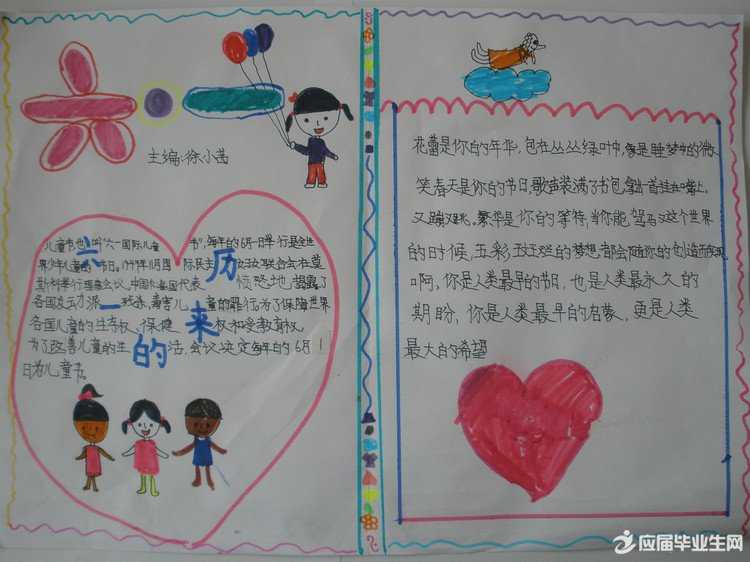 六·一
主编:徐小茜
儿童节也叫"六一国际儿童节",每年的6月1日举行是全世
界少年儿童的节日。1949年11月国际民主妇女联合会在莫
斯科举行理事会议,中国和各国代表愤怒地揭露了
各国反动派残杀、毒害儿童的罪行为了保障世界
各国儿童的生存权、保健权和受教育权
为了改善儿童的生活,会议决定每年的6月1
日为儿童节。
六一的来历
花蕾是你的年华,包在丛丛绿叶中,像是睡梦中的微
笑春天是你的节日,歌声装满了书包拿出一首挂在嘴上。
又蹦又跳。繁华是你的等待,当你能驾马这个世界
的时候,五彩斑斓的梦想都会随你的创造而实现
啊,你是人类最早的节日,也是人类最永久的
期盼,你是人类最早的启蒙,更是人类
最大的希望
应届毕业生网